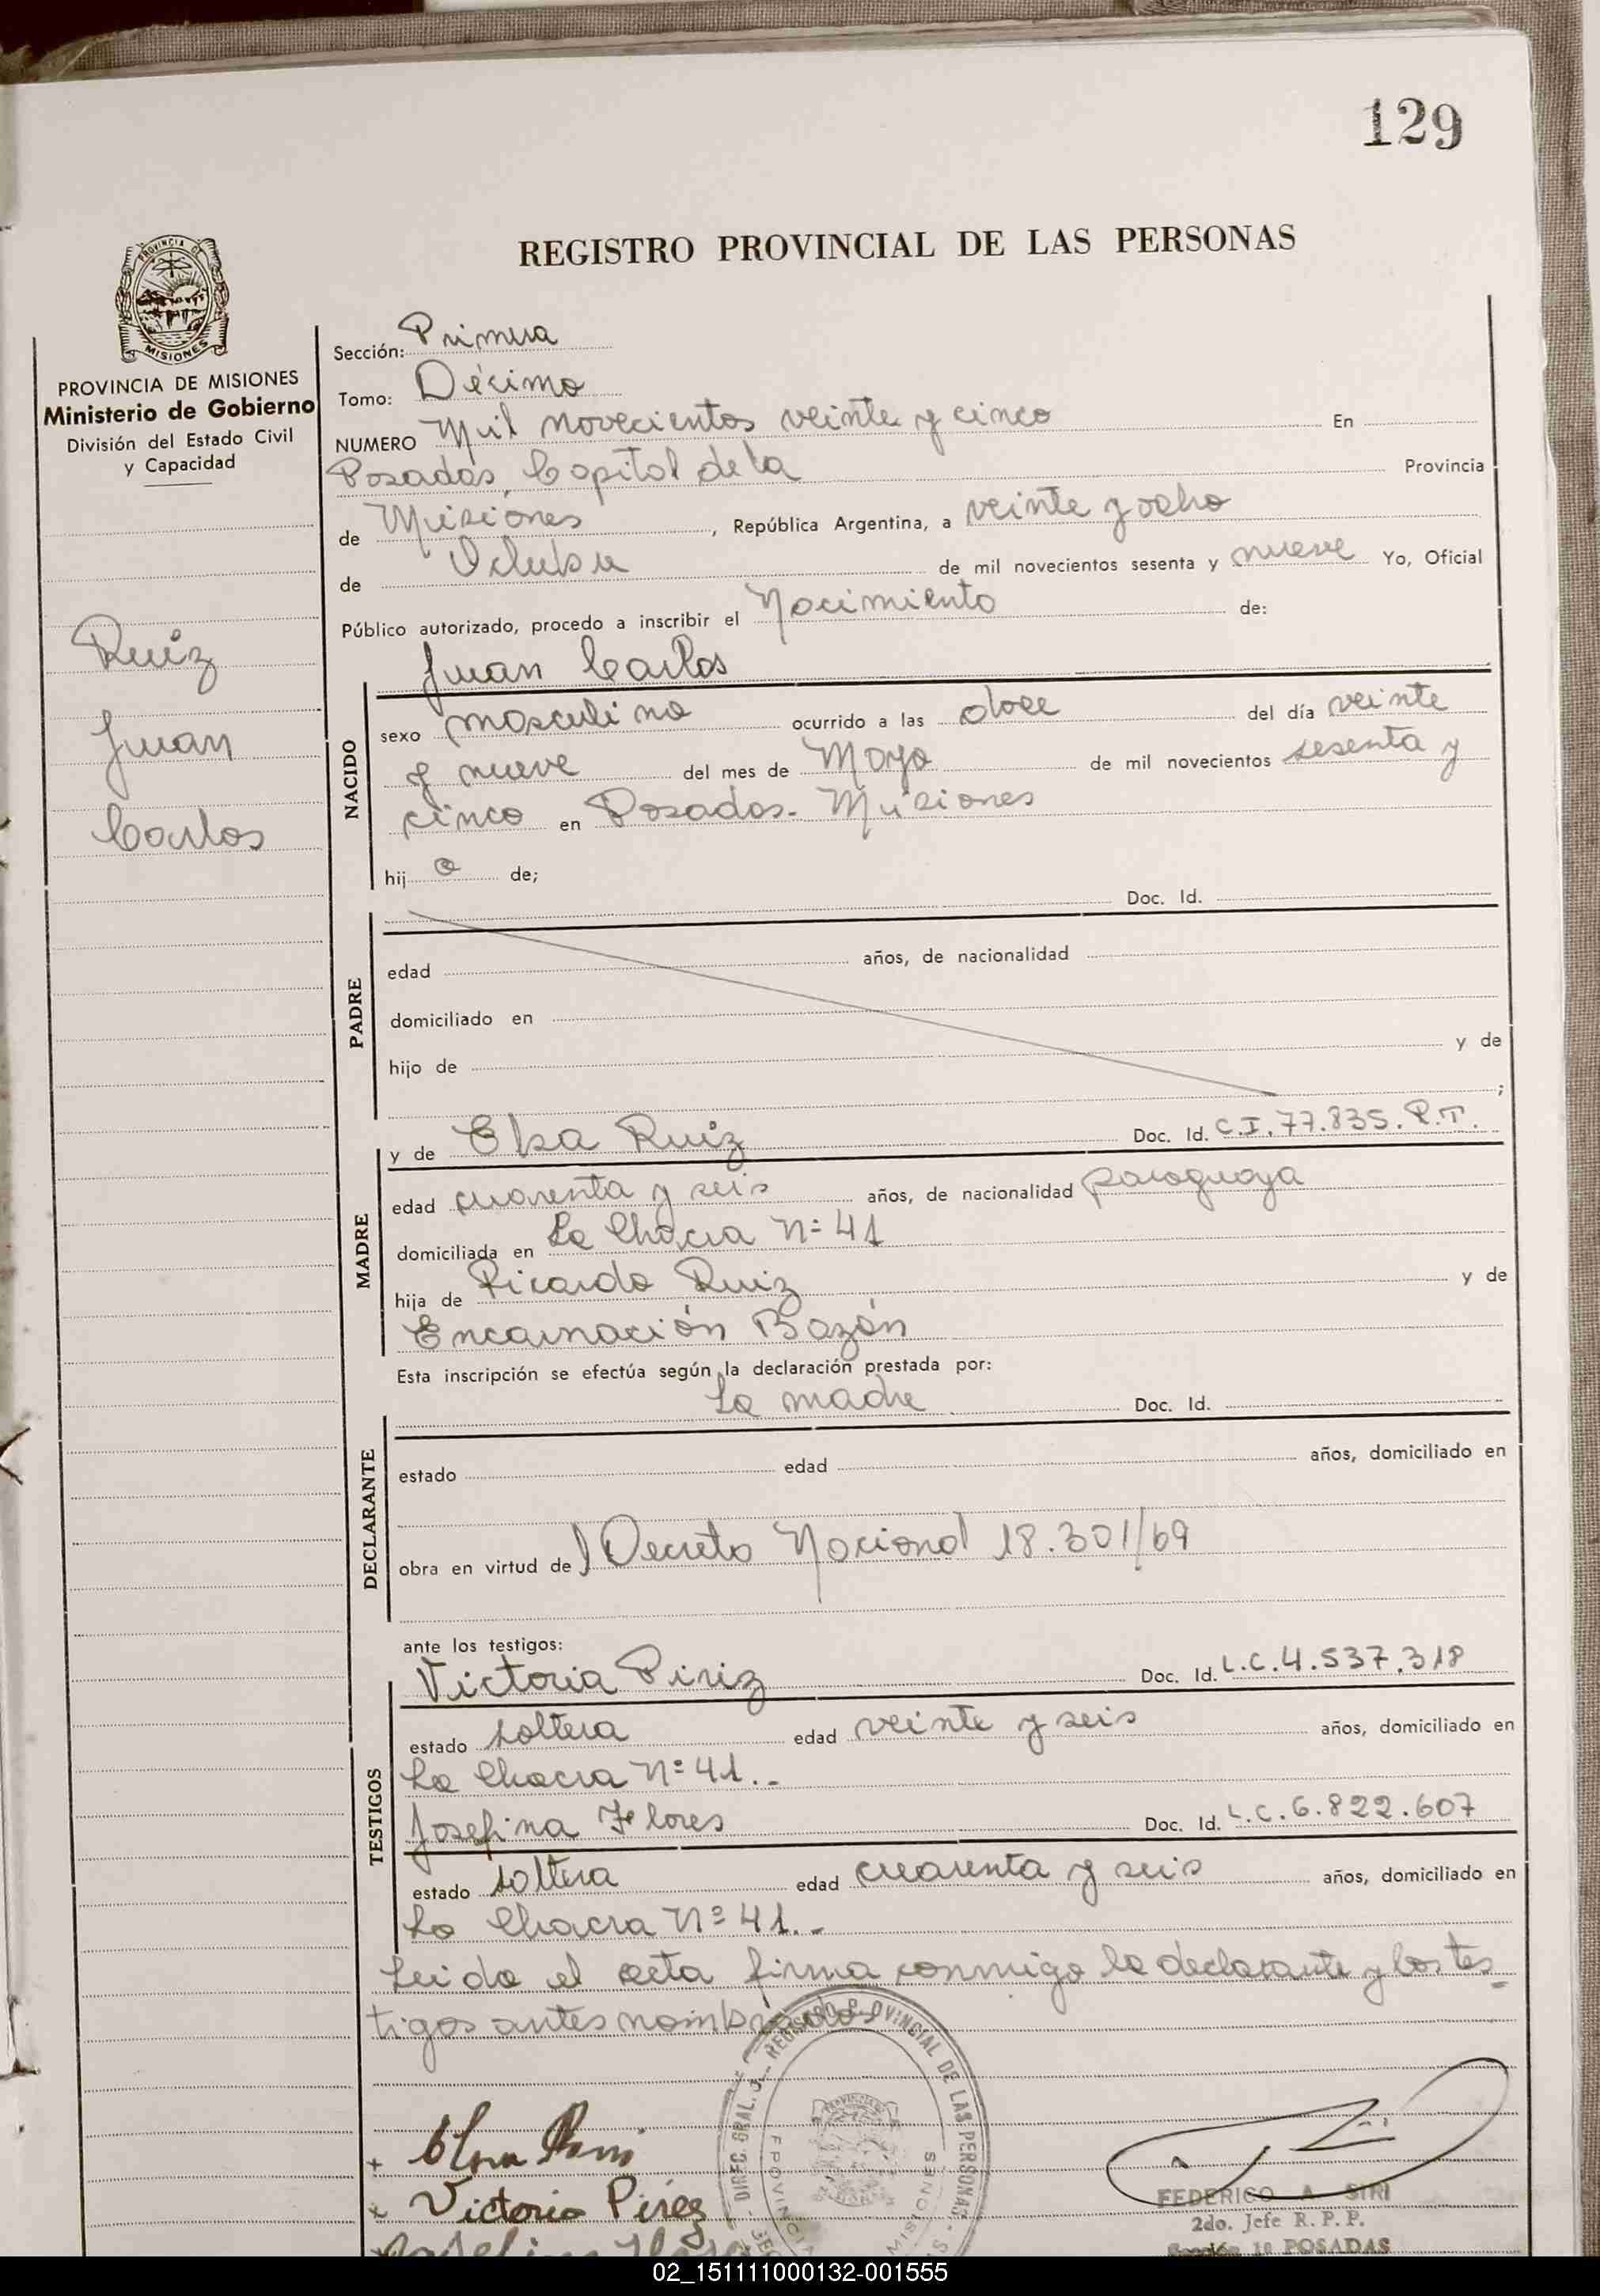 129
REGISTRO PROVINCIAL DE LAS PERSONAS
PROVINCIA DE MISIONES
Ministerio de Gobierno
División del Estado Civil
y Capacidad
Ruiz
Juan
Carlos
Sección: Primera
Tomo: Décimo
NUMERO Mil novecientos veinte y cinco En
Posadas, Capital de la Provincia
de Misiones, República Argentina, a veinte y ocho
de Octubre de mil novecientos sesenta y nueve Yo, Oficial
Público autorizado, procedo a inscribir el Nacimiento de:
Juan Carlos
NACIDO
sexo masculino ocurrido a las doce del día veinte
y nueve del mes de Mayo de mil novecientos sesenta y
cinco en Posadas. Misiones
hij o de;
PADRE
Doc. Id.
edad años, de nacionalidad
domiciliado en
hijo de y de
;
MADRE
y de Elsa Ruiz Doc. Id. C.I. 77.835. P.T.
edad cuarenta y seis años, de nacionalidad paraguaya
domiciliada en La Chacra Nº 41
hija de Ricardo Ruiz y de
Encarnación Bazán
Esta inscripción se efectúa según la declaración prestada por:
DECLARANTE
La madre Doc. Id.
estado edad años, domiciliado en
obra en virtud de l Decreto Nacional 18.301/69
ante los testigos:
TESTIGOS
Victoria Piriz Doc. Id. L.C. 4.537.318
estado soltera edad veinte y seis años, domiciliado en
La Chacra Nº 41.-
Josefina Flores Doc. Id. L.C. 6.822.607
estado soltera edad cuarenta y seis años, domiciliado en
La Chacra Nº 41.-
Leida el acta firma conmigo la declarante y los tes-
tigos antes nombrados
DIREC. GRAL. REGISTRO PROVINCIAL DE LAS PERSONAS
MISIONES
+
x Victoria Pirez
FEDERICO A. SIRI
2do. Jefe R. P. P.
Sección 1ª POSADAS
02_151111000132-001555